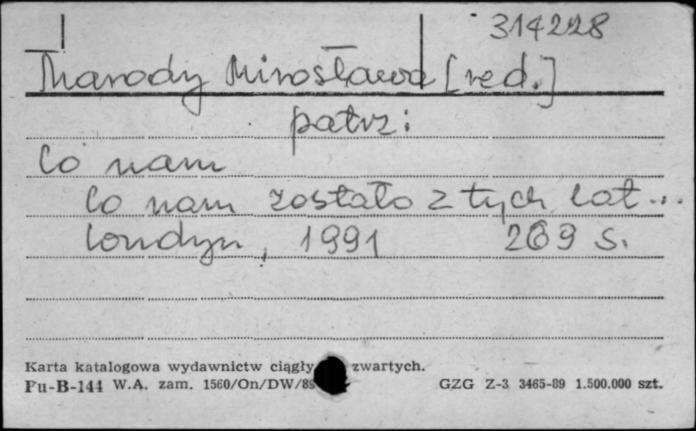 314228
Marody Mirosława [red.]
patrz:
Co nam
Co nam zostało z tych lat...
Londyn, 1991 269 s.
Karta katalogowa wydawnictw ciągły zwartych.
Pu-B-144 W.A. zam. 1560/On/DW/89 GZG Z-3 3465-89 1.500.000 szt.